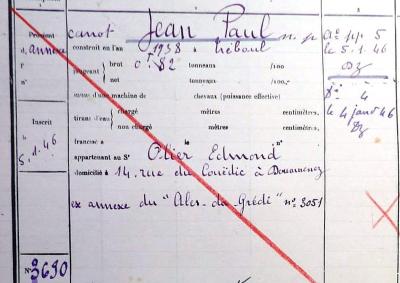 Provient
canot Jean Paul n. p
d. annexe
construit en l'an 1938 à Tréboul
jaugeant
brut 0T 82 tonneaux /100,
net tonneaux /100,
muni d'une machine de chevaux (puissance effective)
tirant d'eau
chargé mètres centimètres,
non chargé mètres centimètres,
francisé à le
appartenant au Sr Olier Edmond
domicilié à 14, rue du Couëdic à Douarnenez
ex annexe du "Ales-da-Grédi" n° 3051
Inscrit
le
5.1.46
N° 3690
5
le 5.1.46
4
le 4 janv 46